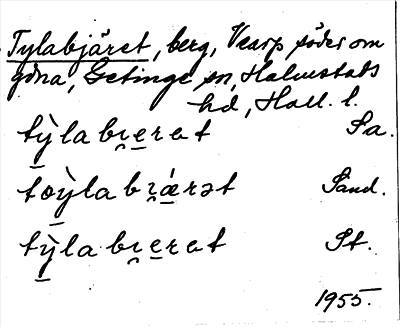 Tylabjäret, berg, Vearp söder om
gdna, Getinge sn, Halmstads
hd, Hall. l.
tỳ̠labı̯e̠rɑt Sa.
tɷỳ̠labı̯ǽ̠rət Sand.
tỳ̠labı̯e̠rɑt St.
1955.